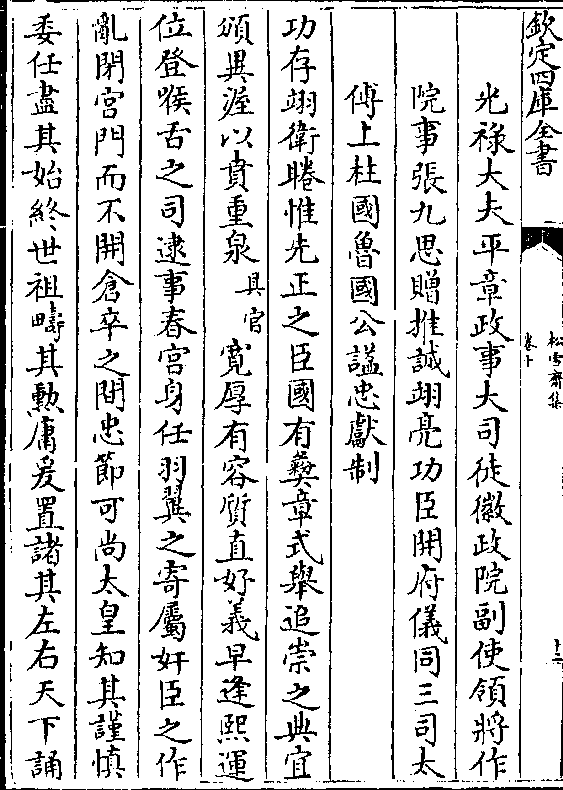 欽定四庫全書
松雪齋集
卷十
十二
光祿大夫平章政事大司徒徽政院副使領將作
院事張九思贈推誠翊亮功臣開府儀同三司太
傅上柱國魯國公諡忠獻制
功存翊衛睠惟先正之臣國有彝章式舉追崇之典宜
頒異渥以賁重泉具官寛厚有容質直好義早逢熙運
位登喉舌之司逮事春宮身任羽翼之寄屬奸臣之作
亂閉宮門而不開倉卒之間忠節可尚太皇知其謹慎
委任盡其始終世祖疇其勲庸爰置諸其左右天下誦